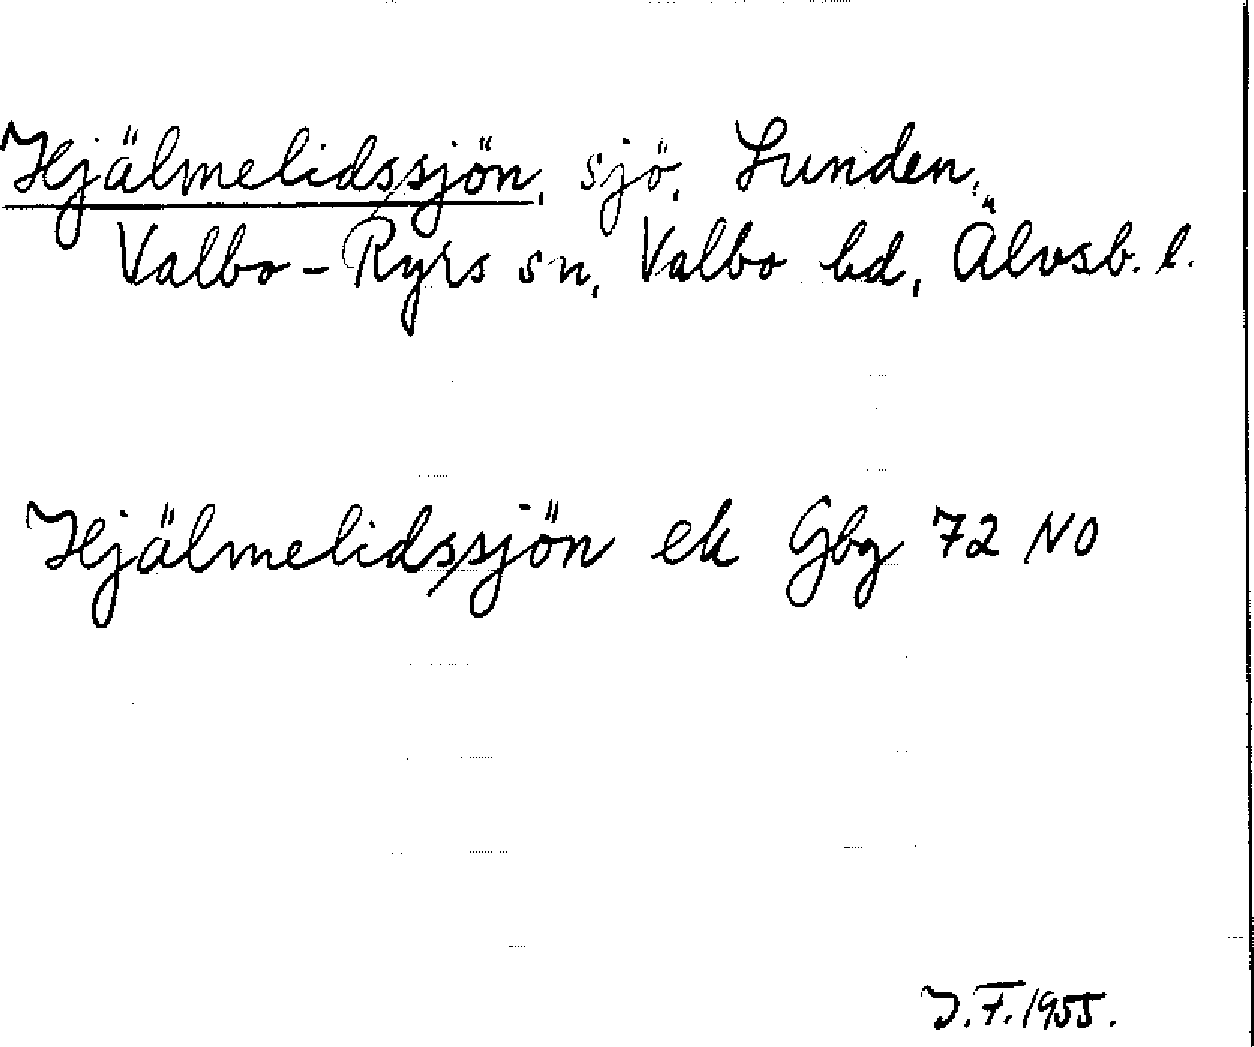 Hjälmelidssjön, sjö, Lunden,
Valbo-Ryrs sn, Valbo hd, Älvsb. l.
Hjälmelidssjön ek Gbg 72 NO
J.F. 1955.